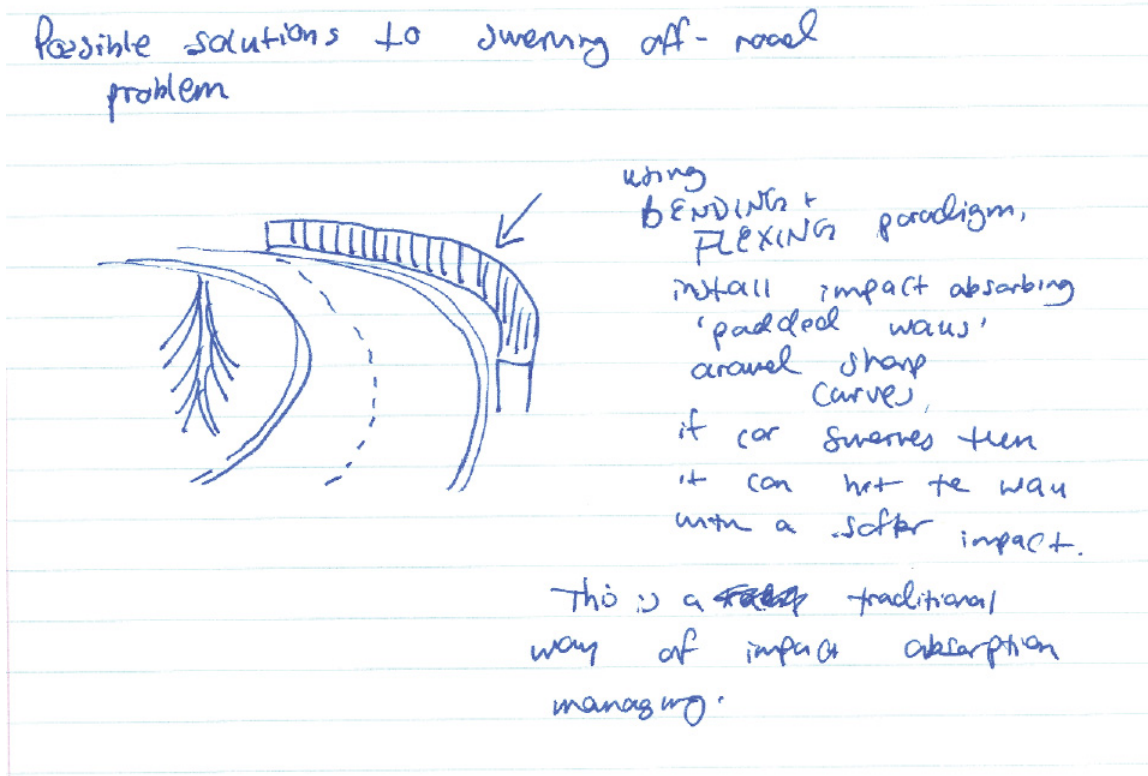 Possible solutions to swerving off-road
problem
using
BENDING +
FLEXING paradigm,
install impact absorbing
'padded walls'
around sharp
curves,
if car swerves then
it can hit the wall
with a softer impact.
This is a traditional
way of impact absorption
managing.